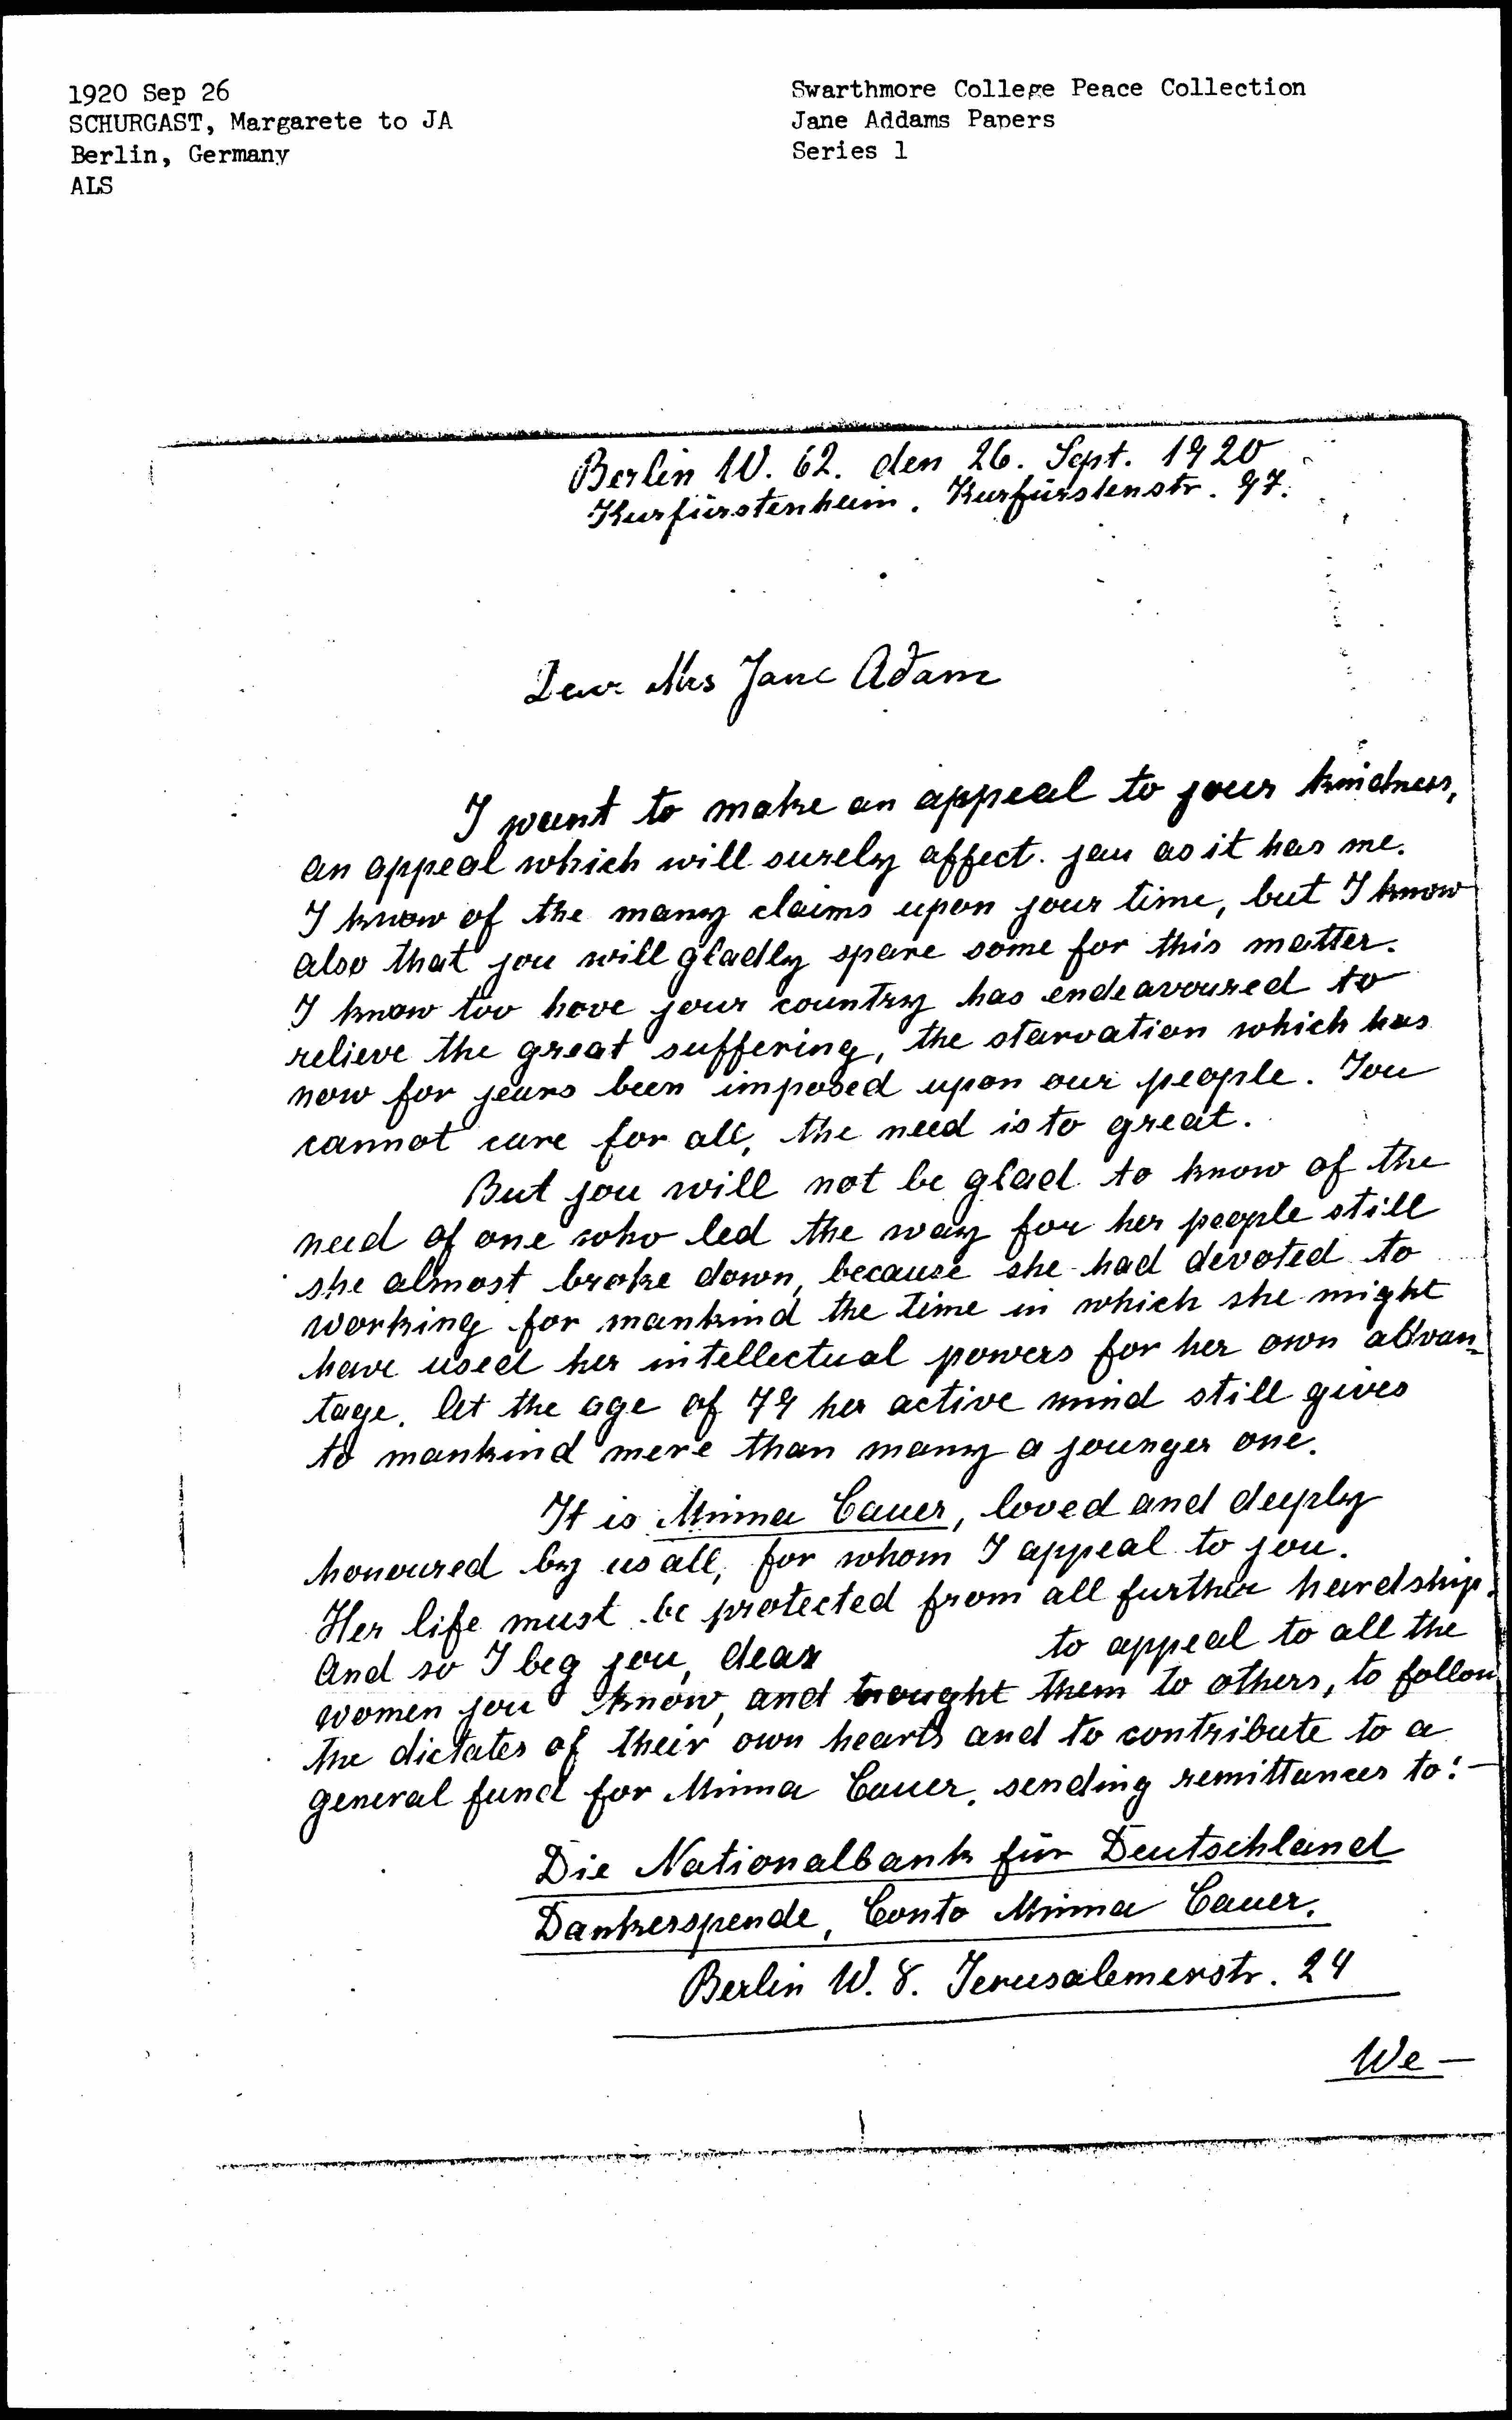 1920 Sep 26
SCHURGAST, Margarete to JA
Berlin, Germany
ALS
Swarthmore College Peace Collection
Jane Addams Papers
Series 1
Berlin W. 62. den 26. Sept. 1920
Kurfürstenheim. Kurfürstenstr. 97.
Dear Mrs Jane Adam
I want to make an appeal to your kindness,
an appeal which will surely affect. you as it has me.
I know of the many claims upon your time, but I know
also that you will gladly spare some for this matter.
I know too hove your country has endeavoured to
relieve the great suffering, the starvation which has
now for years been imposed upon our people. You
cannot care for all, the need is to great.
But you will not be glad to know of the
need of one who led the way for her people still
she almost broke down, because she had devoted to
working for mankind the time in which she might
have used her intellectual powers for her own advan-
tage. At the age of 79 her active mind still gives
to mankind more than many a younger one.
It is Minna Cauer, loved and deeply
honoured by us all, for whom I appeal to you.
Her life must be protected from all further hardship.
And so I beg you, dear to appeal to all the
women you know, and them to others, to follow
the dictates of their own hearts and to contribute to a
general fund for Minna Cauer, sending remittances to:—
Die Nationalbank für Deutschland
Dankesspende, Conto Minna Cauer.
Berlin W. 8. Jerusalemerstr. 24
We —